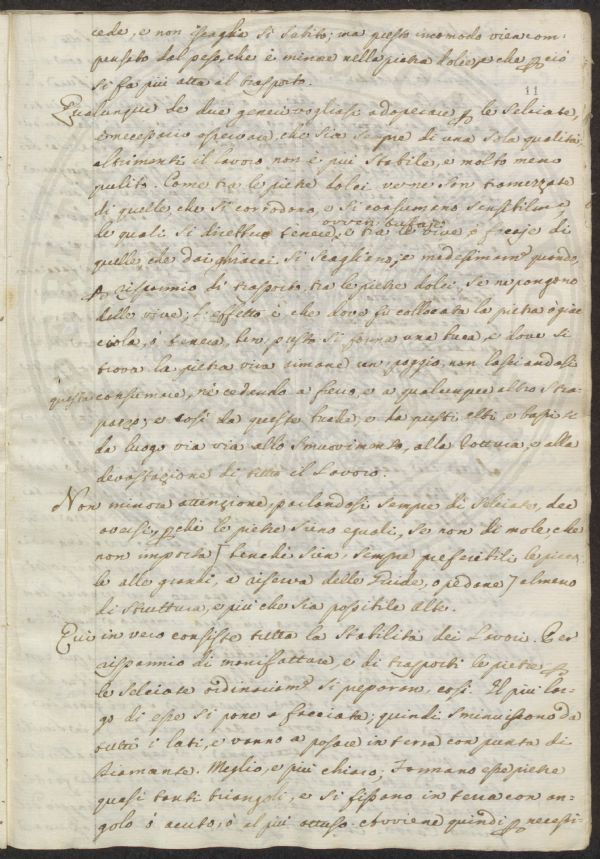 cede, e non scaglia sì subito; ma questo incomodo vien com-
pensato dal peso, che è minore nella pietra dolce, e che p ciò
si fa più atta al trasporto.
11
Qualunque de due generi vogliasi adoperare p le Selciate,
è necessario osservare, che sia sempre di una sola qualità
altrimenti il lavoro non è più stabile, e molto meno
pulito. Come tra le pietre dolci ve ne son tramezzate
di quelle, che si corrodono, e si consumano
le quali si dicono tenere, ovvero bufaje e tra le vive è
quelle che dai ghiacci si scagliano, e medesimam.e quando,
p risparmio di trasporto tra le pietre dolci, se ne pongono
delle vive; l'effetto è che dove fu collocata la pietra
ciola, ò tenera, ben presto si forma una buca, e dove si
trova la pietra viva rimane un poggio, non lasciandosi
questa consumare, nè cedendo a freno, e a qualunque altro stra-
pazzo; e così da queste buche, e da questi alti, e bassi si
da luogo via via allo smuovimento, alla rottura, e alla
devastazione di tutto il Lavoro.
Non minore attenzione, parlandosi sempre di Selciato, dee
aversi, p chè le pietre sieno eguali, se non di mole, che
non importa [benchè sien sempre preferibili le picco-
le alle grandi, a riserva delle Guide, o pedane] almeno
di struttura, e più che sia possibile alte.
Qui in vero consiste tutta la Stabilità dei Lavori. Per
risparmio di manifatture, e di trasporti le pietre p
le Selciate ordinariam.e si preparon così. Il più lar-
go di esse si pone a facciata; quindi sminuiscono da
tutti i lati, e vanno a posare in terra con punta di
Diamante. Meglio, e più chiaro; Formano esse pietre
quasi tanti triangoli, e si fissano in terra con an-
golo ò acuto, ò al più ottuso. Conviene quindi p necessi-